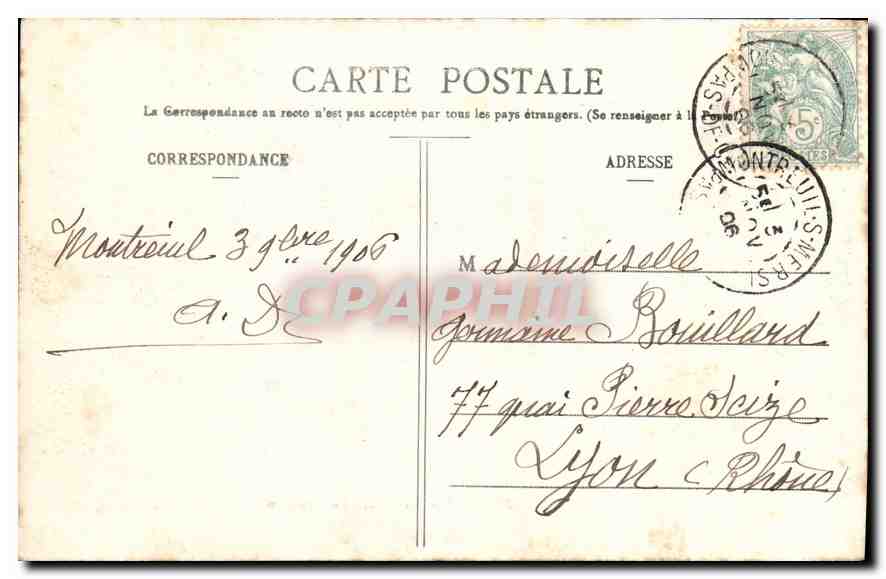 CARTE POSTALE
La Correspondance au recto n'est pas acceptée par tous les pays étrangers. (Se renseigner à la Poste)
CORRESPONDANCE
ADRESSE
5c
MONTREUIL-S-MER
PAS-DE-
NOV
06
Montreuil 3 9bre 1906
A. D
Mademoiselle
Germaine Bouillard
77 quai Pierre Scize
Lyon (Rhône)
CPAPHIL